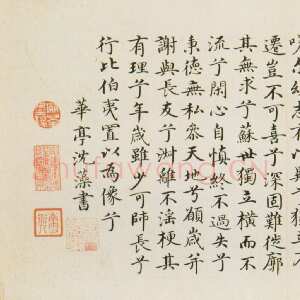 遷豈不可喜兮深固難徙廓
其無求兮蘇世獨立橫而不
流兮閉心自慎終不過失兮
秉德無私參天地兮願歲并
謝與長友兮淑離不淫梗其
有理兮年歲雖少可師長兮
行比伯夷置以為像兮
華亭沈藻書